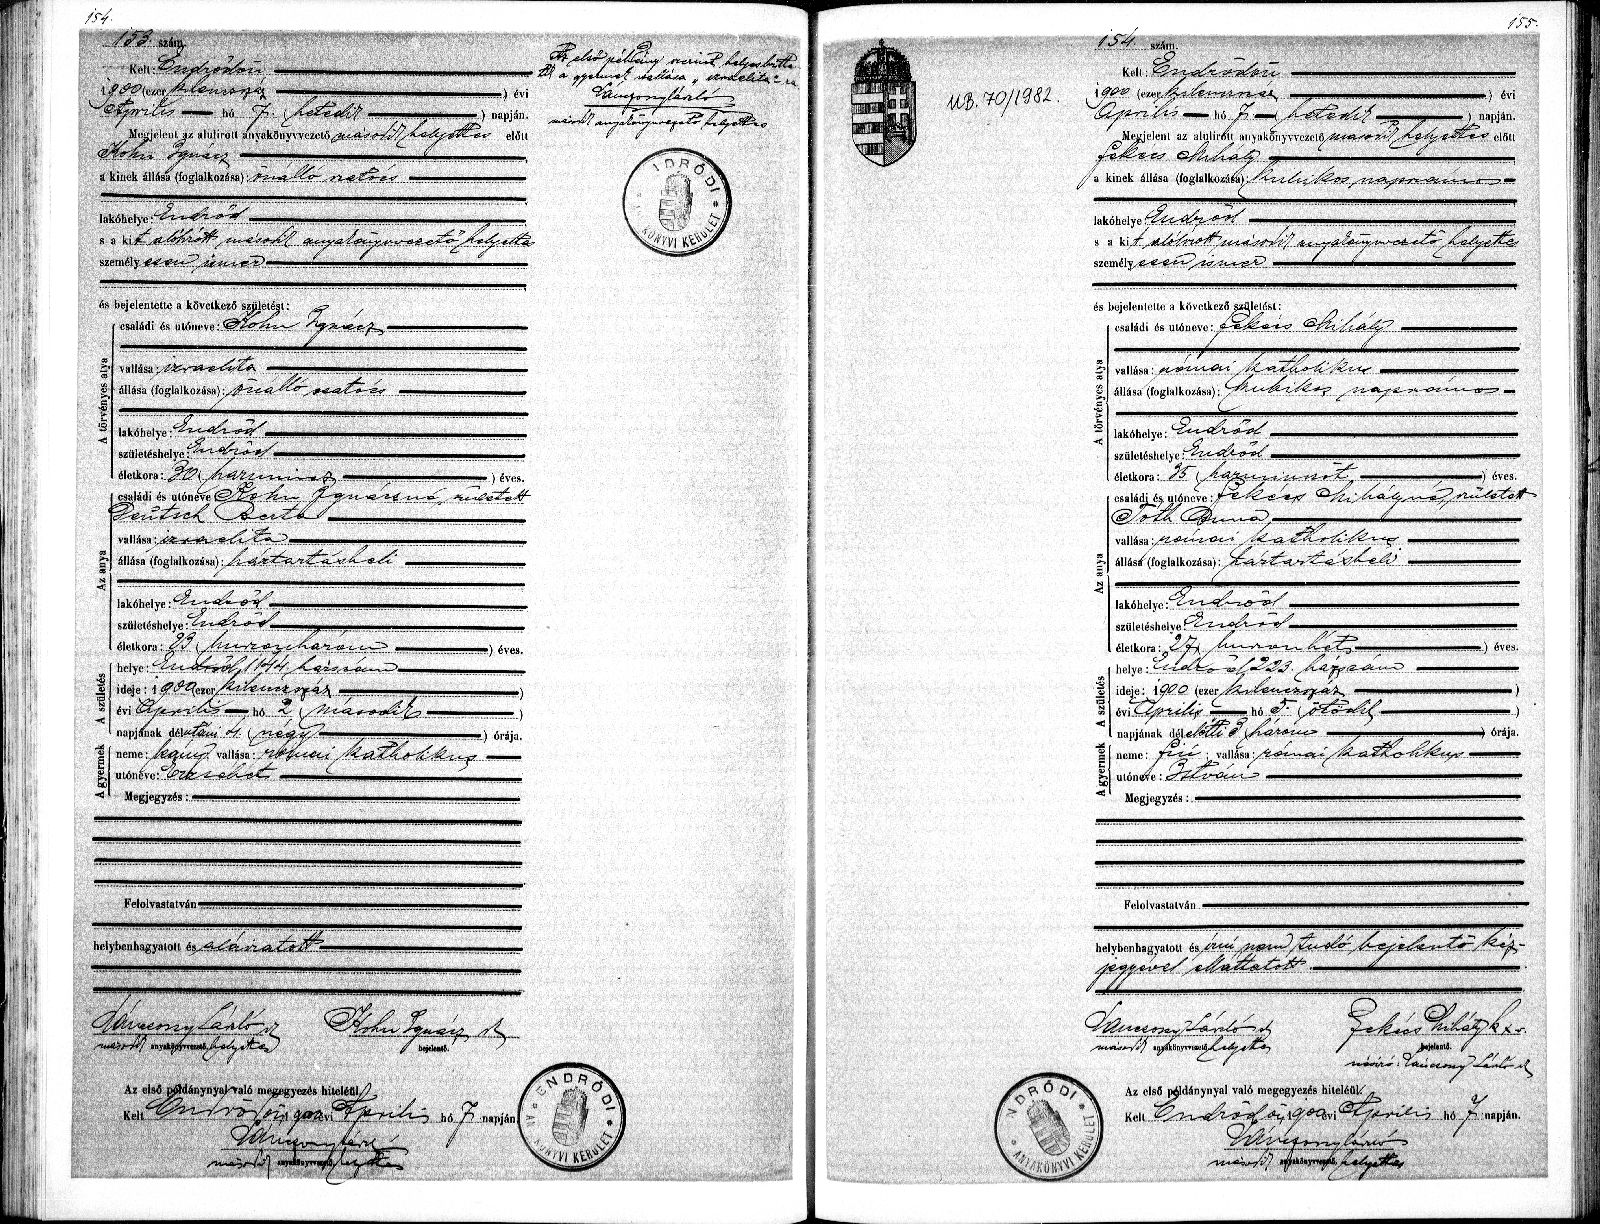 154.
153. szám.
Kelt: Endrődön
1900 (ezer kilenczszáz) évi
Április hó 7. (hetedik) napján.
Megjelent az alulirott anyakönyvvezető második helyettes előtt
Kohn Ignácz
a kinek állása (foglalkozása): önálló szatócs
lakóhelye: Endrőd
s a kit alólirott második anyakönyvvezető helyettes
személyesen ismer
és bejelentette a következő születést:
A törvényes atya
családi és utóneve: Kohn Ignácz
vallása: izraelita
állása (foglalkozása): önálló szatócs
lakóhelye: Endrőd
születéshelye: Endrőd
életkora: 30 (harmincz) éves.
Az anya
családi és utóneve: Kohn Ignáczné, született
Deutsch Berta
vallása: izraelita
állása (foglalkozása): háztartásbeli
lakóhelye: Endrőd
születéshelye: Endrőd
életkora: 23 (huszonhárom) éves.
A születés
helye: Endrőd, 1144 házszám
ideje: 1900 (ezer kilenczszáz)
évi Április hó 2 (második)
napjának délutáni 4 (négy) órája.
A gyermek
neme: leány vallása: római katholikus
utóneve: Erzsébet
Megjegyzés:
Felolvastatván
helybenhagyatott és aláiratott
Váncsony László sk Kohn Ignácz sk
második anyakönyvvezető helyettes bejelentő.
Az első példánynyal való megegyezés hiteléül.
Kelt Endrődön, 1900 évi Április hó 7 napján.
második anyakönyvvezető helyettes
ENDRŐDI ANYAKÖNYVI KERÜLET
Az első példány szerint helyesbitte
a gyermek vallása "izraelita"-ra
második anyakönyvvezető helyettes
ENDRŐDI ANYAKÖNYVI KERÜLET
155.
154. szám.
UB. 70/1982.
Kelt: Endrődön
1900 (ezer kilenczszáz) évi
Április hó 7 (hetedik) napján.
Megjelent az alulirott anyakönyvvezető második helyettes előtt
Fekécs Mihály
a kinek állása (foglalkozása): kubikos napszámos
lakóhelye: Endrőd
s a kit alólirott második anyakönyvvezető helyettes
személyesen ismer
és bejelentette a következő születést:
A törvényes atya
családi és utóneve: Fekécs Mihály
vallása: római katholikus
állása (foglalkozása): kubikos napszámos
lakóhelye: Endrőd
születéshelye: Endrőd
életkora: 35 (harminczöt) éves.
Az anya
családi és utóneve: Fekécs Mihályné, született
Tóth Anna
vallása: római katholikus
állása (foglalkozása): háztartásbeli
lakóhelye: Endrőd
születéshelye: Endrőd
életkora: 27 (huszonhét) éves.
A születés
helye: Endrőd, 223. házszám
ideje: 1900 (ezer kilenczszáz)
évi Április hó 5. (ötödik)
napjának délelőtti 3 (három) órája.
A gyermek
neme: fiú; vallása: római katholikus
utóneve: István
Megjegyzés:
Felolvastatván
helybenhagyatott és irni nem tudó bejelentő kéz-
jegyével elláttatott.
Váncsony László sk Fekécs Mihály k x v.
második anyakönyvvezető helyettes bejelentő.
névíró: Váncsony László sk
Az első példánynyal való megegyezés hiteléül.
Kelt Endrődön, 1900 évi Április hó 7 napján.
második anyakönyvvezető helyettes
ENDRŐDI ANYAKÖNYVI KERÜLET